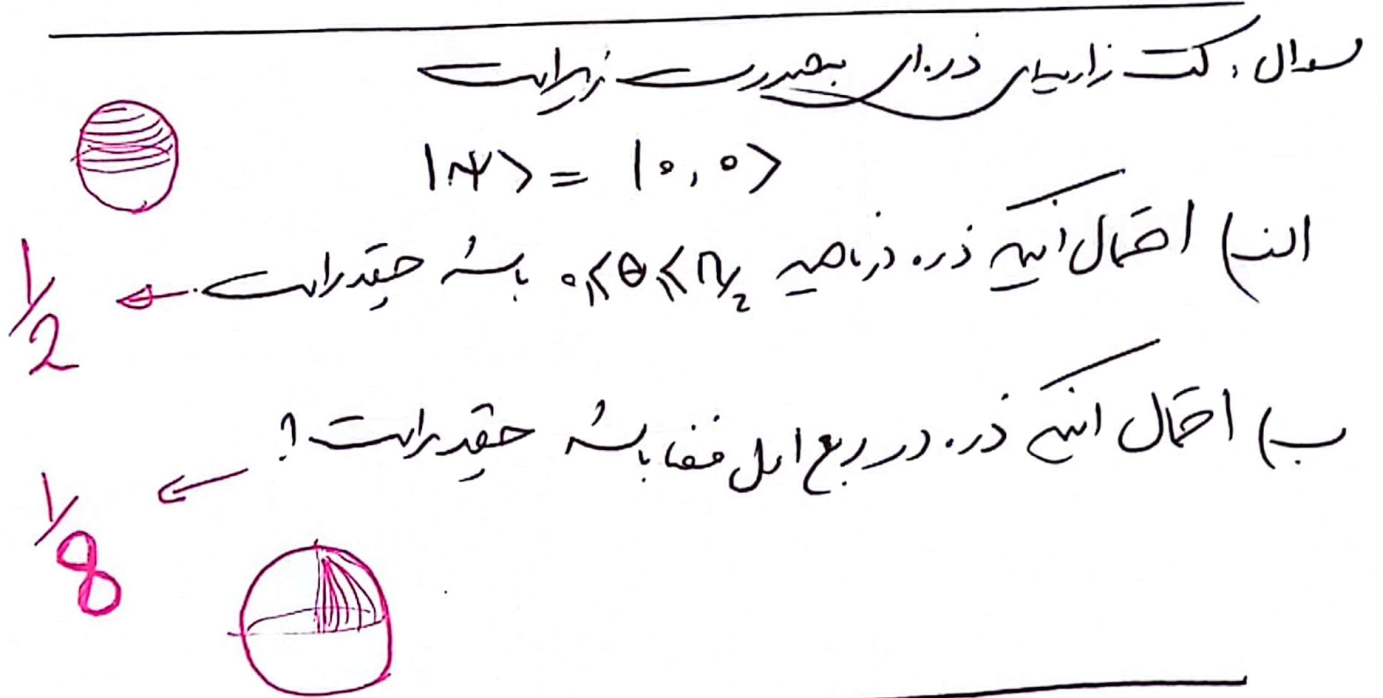 سوال: کت زاویه‌ای ذره‌ای بصورت زیر است
|Ψ> = |0,0>
الف) احتمال اینکه ذره در ناحیه 0≤θ≤π/2 باشد چقدر است ← 1/2
ب) احتمال اینکه ذره در ربع اول فضا باشد چقدر است؟ ← 1/8